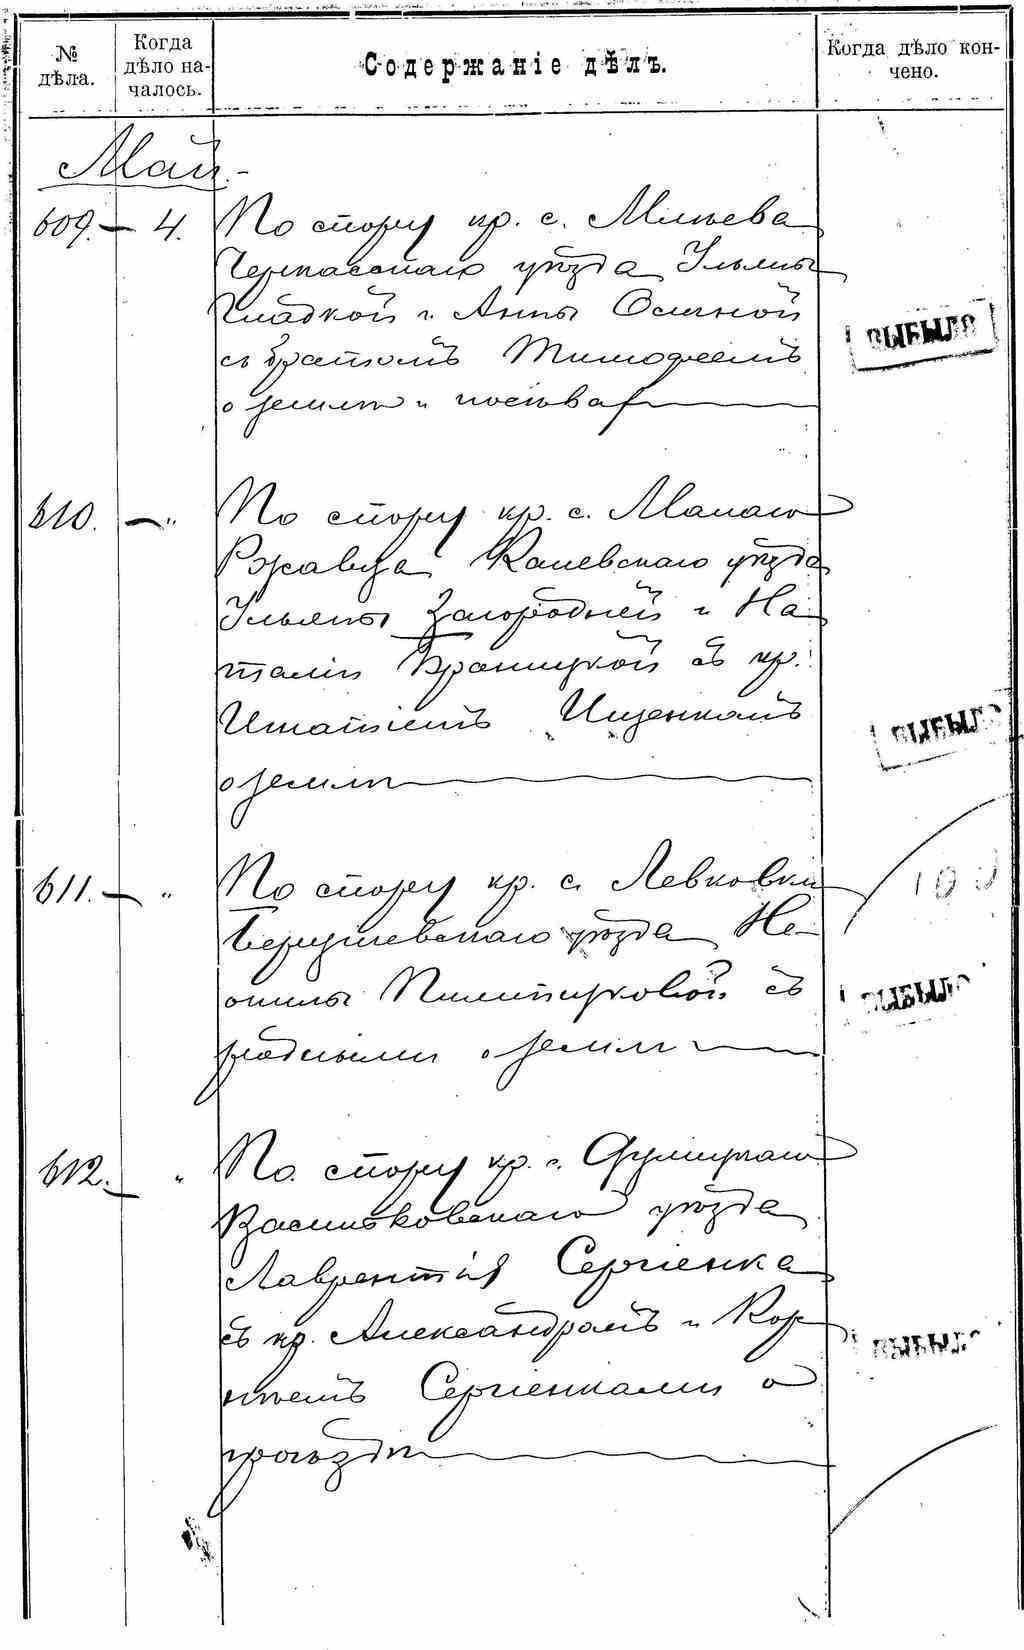 № дѣла.
Когда дѣло началось.
Содержаніе дѣлъ.
Когда дѣло кончено.
Май.
609. — 4. По спору кр. с. Млѣева
Черкасскаго уѣзда Ульяны
Гладкой и Анны Осичной
съ братомъ Тимофеемъ
о землѣ и посѣвах
ВЫБЫЛО
610. — " По спору кр. с. Малаго
Ржавца Каневскаго уѣзда
Ульяны Загородней и На-
таліи Браницкой съ кр.
Игнатіемъ Ищенкомъ
о землѣ
ВЫБЫЛО
611. — " По спору кр. с. Левковки
Бердичевскаго уѣзда Не-
онилы съ
родными о землѣ
ВЫБЫЛО
612. " По спору кр. с.
Васильковскаго уѣзда
Лаврентія Сергіенка
съ кр. Александромъ и Кор-
нѣемъ Сергіенками о
проѣздѣ
ВЫБЫЛО